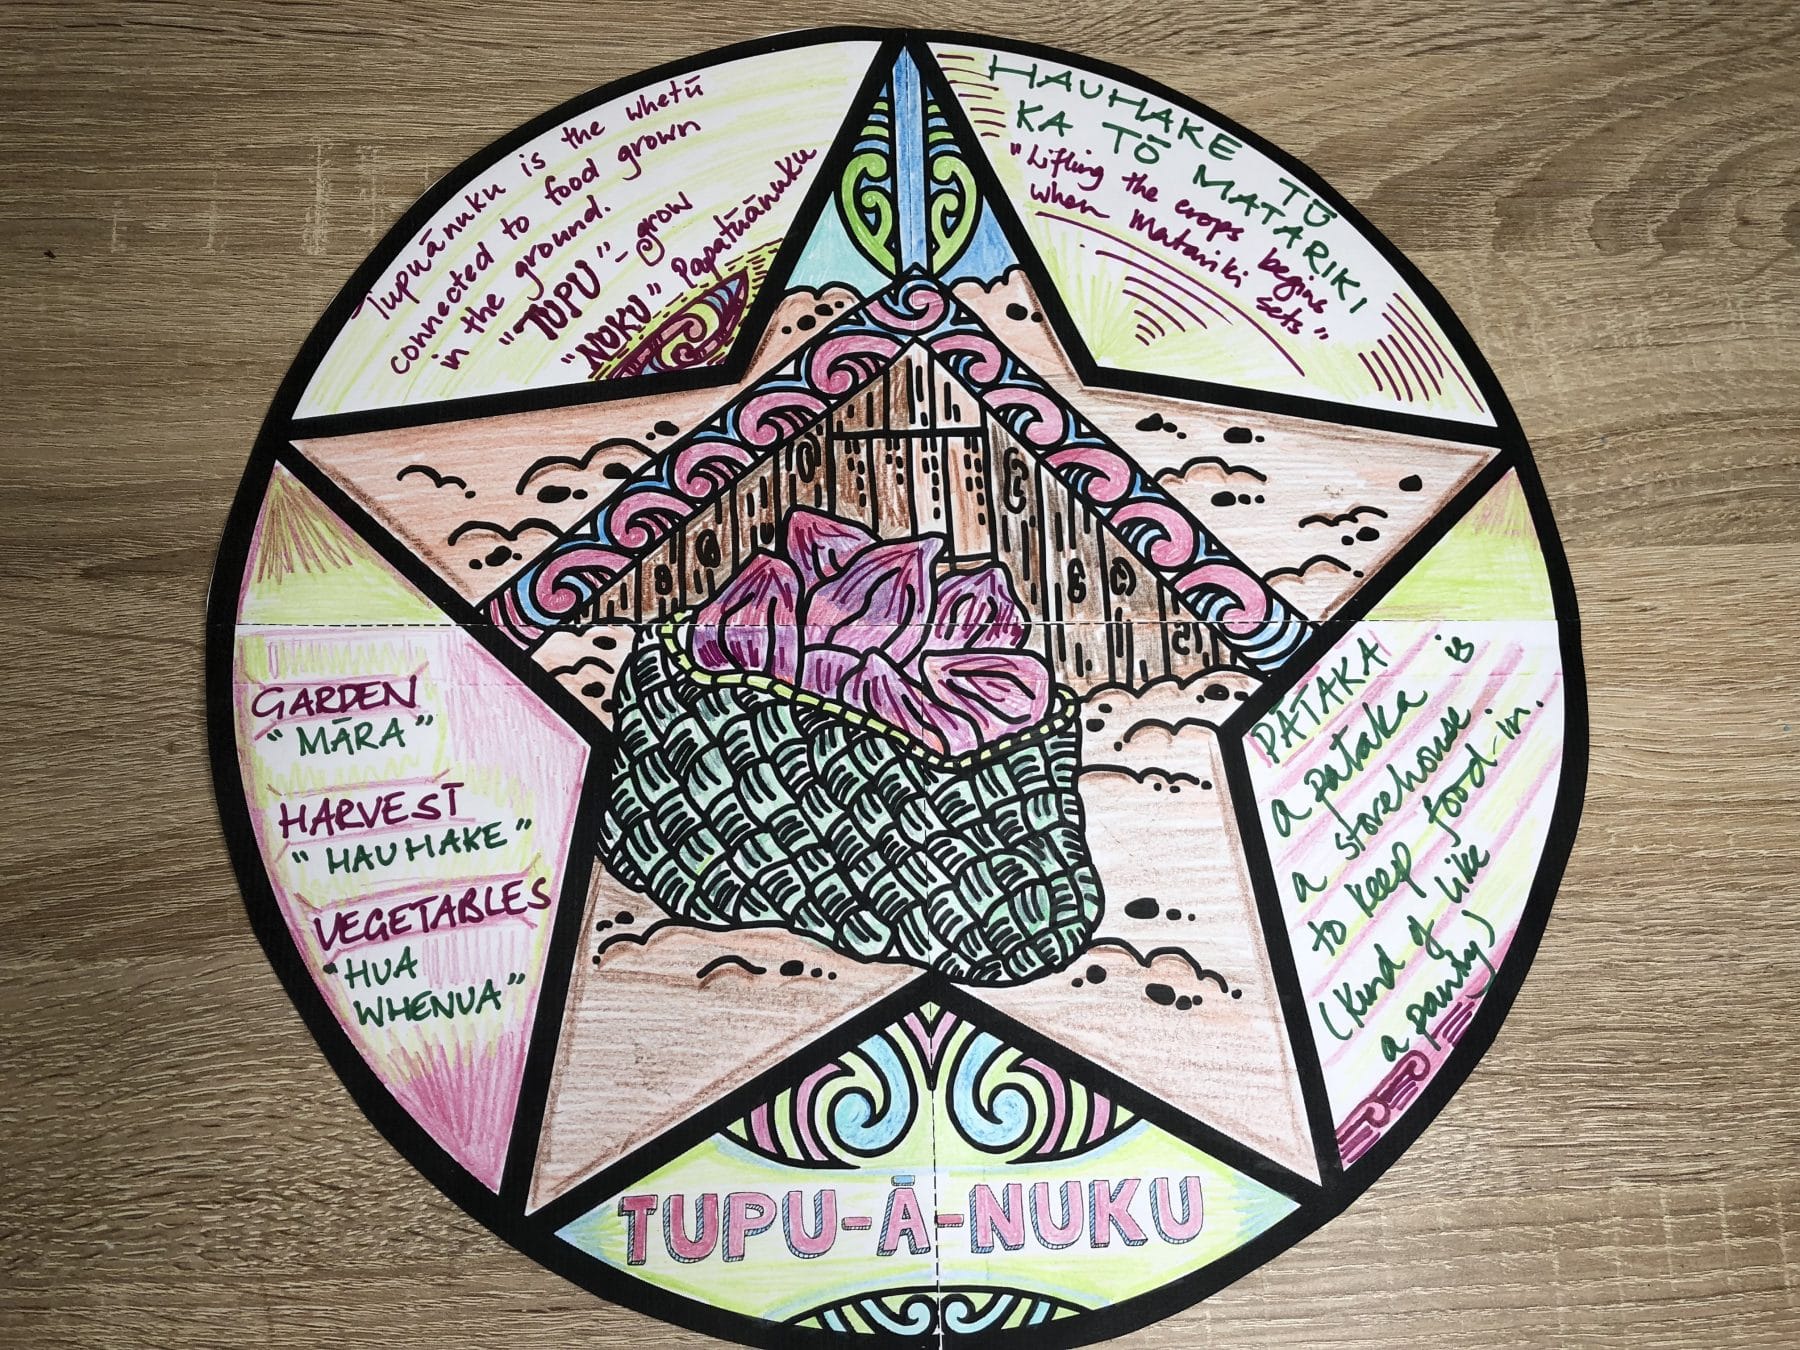 Tupuānuku is the whetū
connected to food grown
in the ground.
"TUPU" - grow
"NUKU" Papatūānuku
HAUHAKE TŪ
KA TŌ MATARIKI
"Lifting the crops begins
when Matariki sets"
GARDEN
"MĀRA"
HARVEST
"HAUHAKE"
VEGETABLES
"HUA
WHENUA"
PĀTAKA
a pataka is
a storehouse
to keep food in.
(Kind of like
a pantry)
TUPU-Ā-NUKU